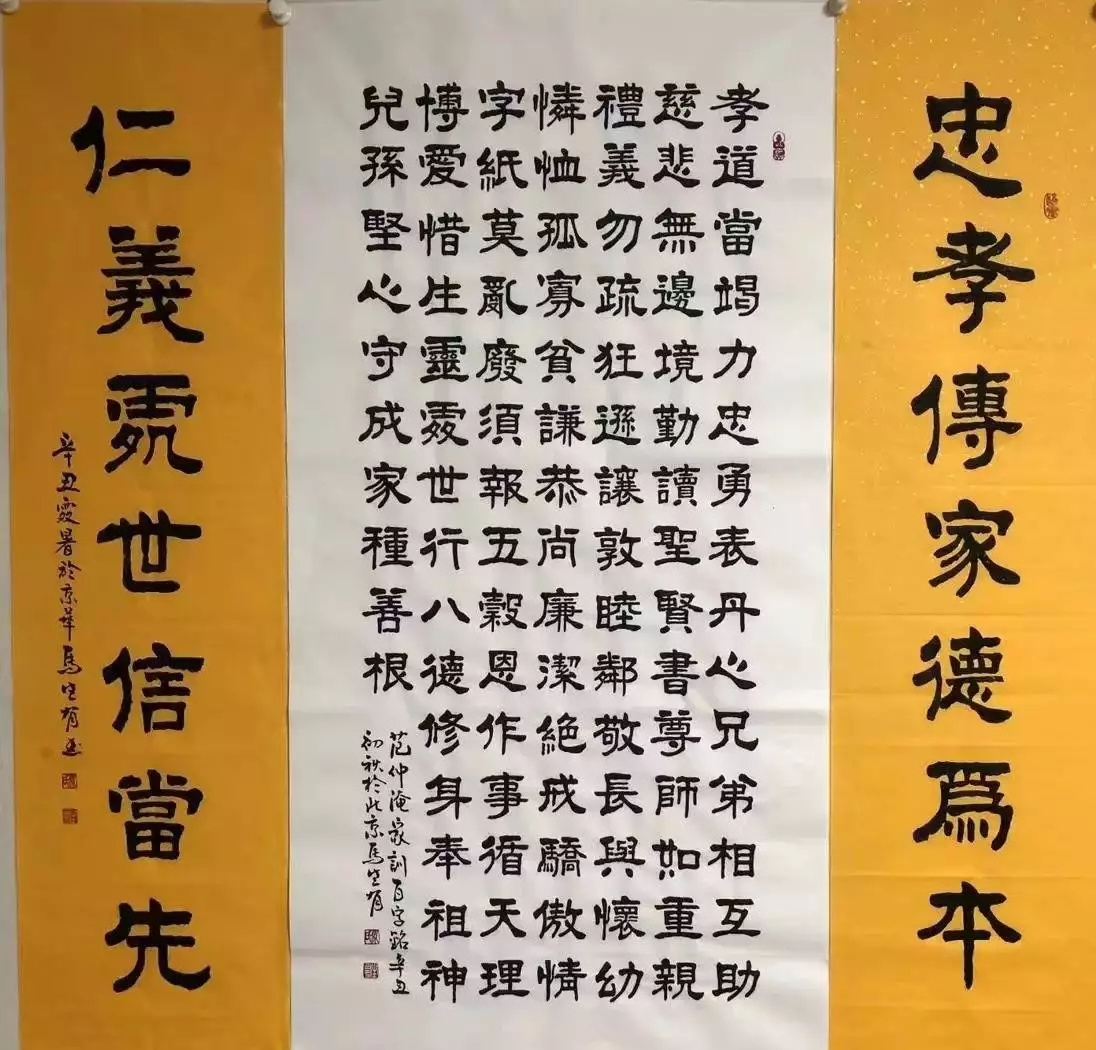 忠孝傳家德爲本
孝道當竭力忠勇表丹心兄弟相互助
慈悲無邊境勤讀聖賢書尊師如重親
禮義勿疏狂遜讓敦睦鄰敬長與懷幼
憐恤孤寡貧謙恭尚廉潔絕戒驕傲情
字紙莫亂廢須報五穀恩作事循天理
博愛惜生靈處世行八德修身奉祖神
兒孫堅心守成家種善根
范仲淹家訓百字銘辛丑
初秋於北京馬
仁義處世信當先
辛丑處暑於京華馬